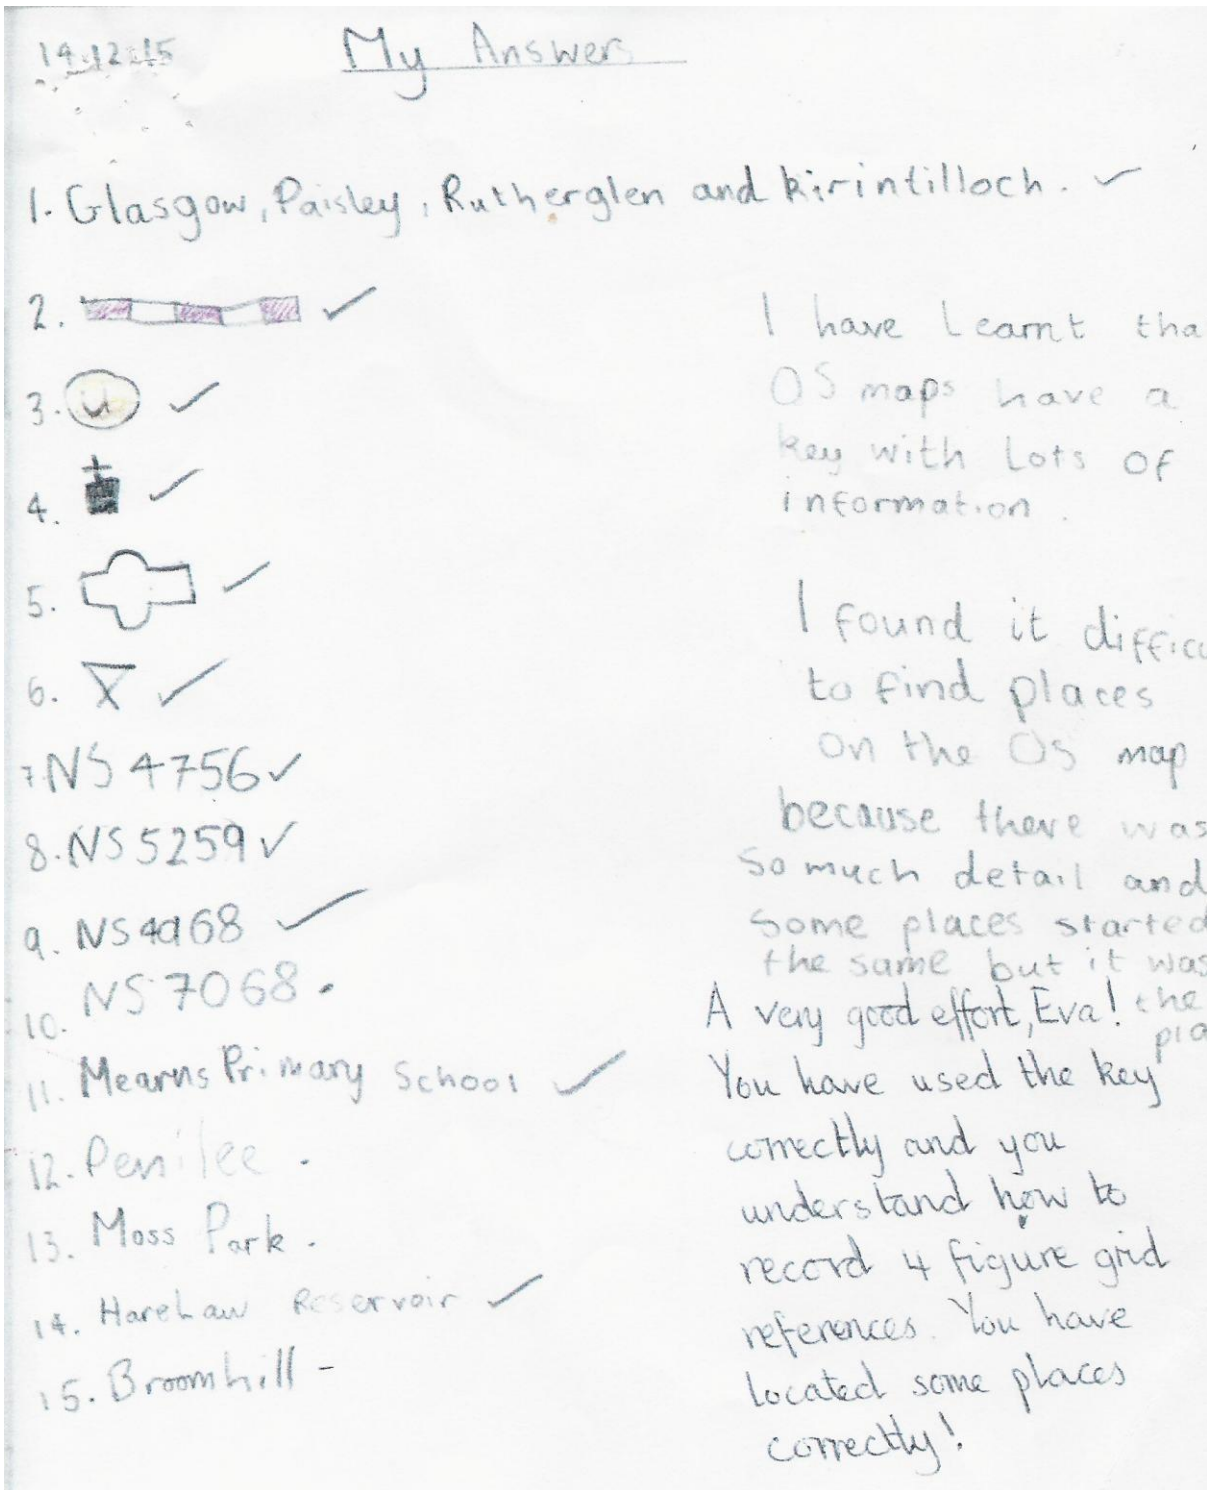 14.12.15
My Answers
1. Glasgow, Paisley, Rutherglen and kirintilloch.
2.
3. u
4.
5.
6.
7. NS 4756
8. NS 5259
9. NS 4968
10. NS 7068.
11. Mearns Primary School
12. Penilee .
13. Moss Park .
14. Harelaw Reservoir
15. Broomhill -
I have Learnt tha
OS maps have a
key with Lots of
information.
I found it difficu
to find places
on the OS map
because there was
so much detail and
some places started
the same but it was
the
pla
A very good effort, Eva!
You have used the key
correctly and you
understand how to
record 4 figure grid
references. You have
located some places
correctly!